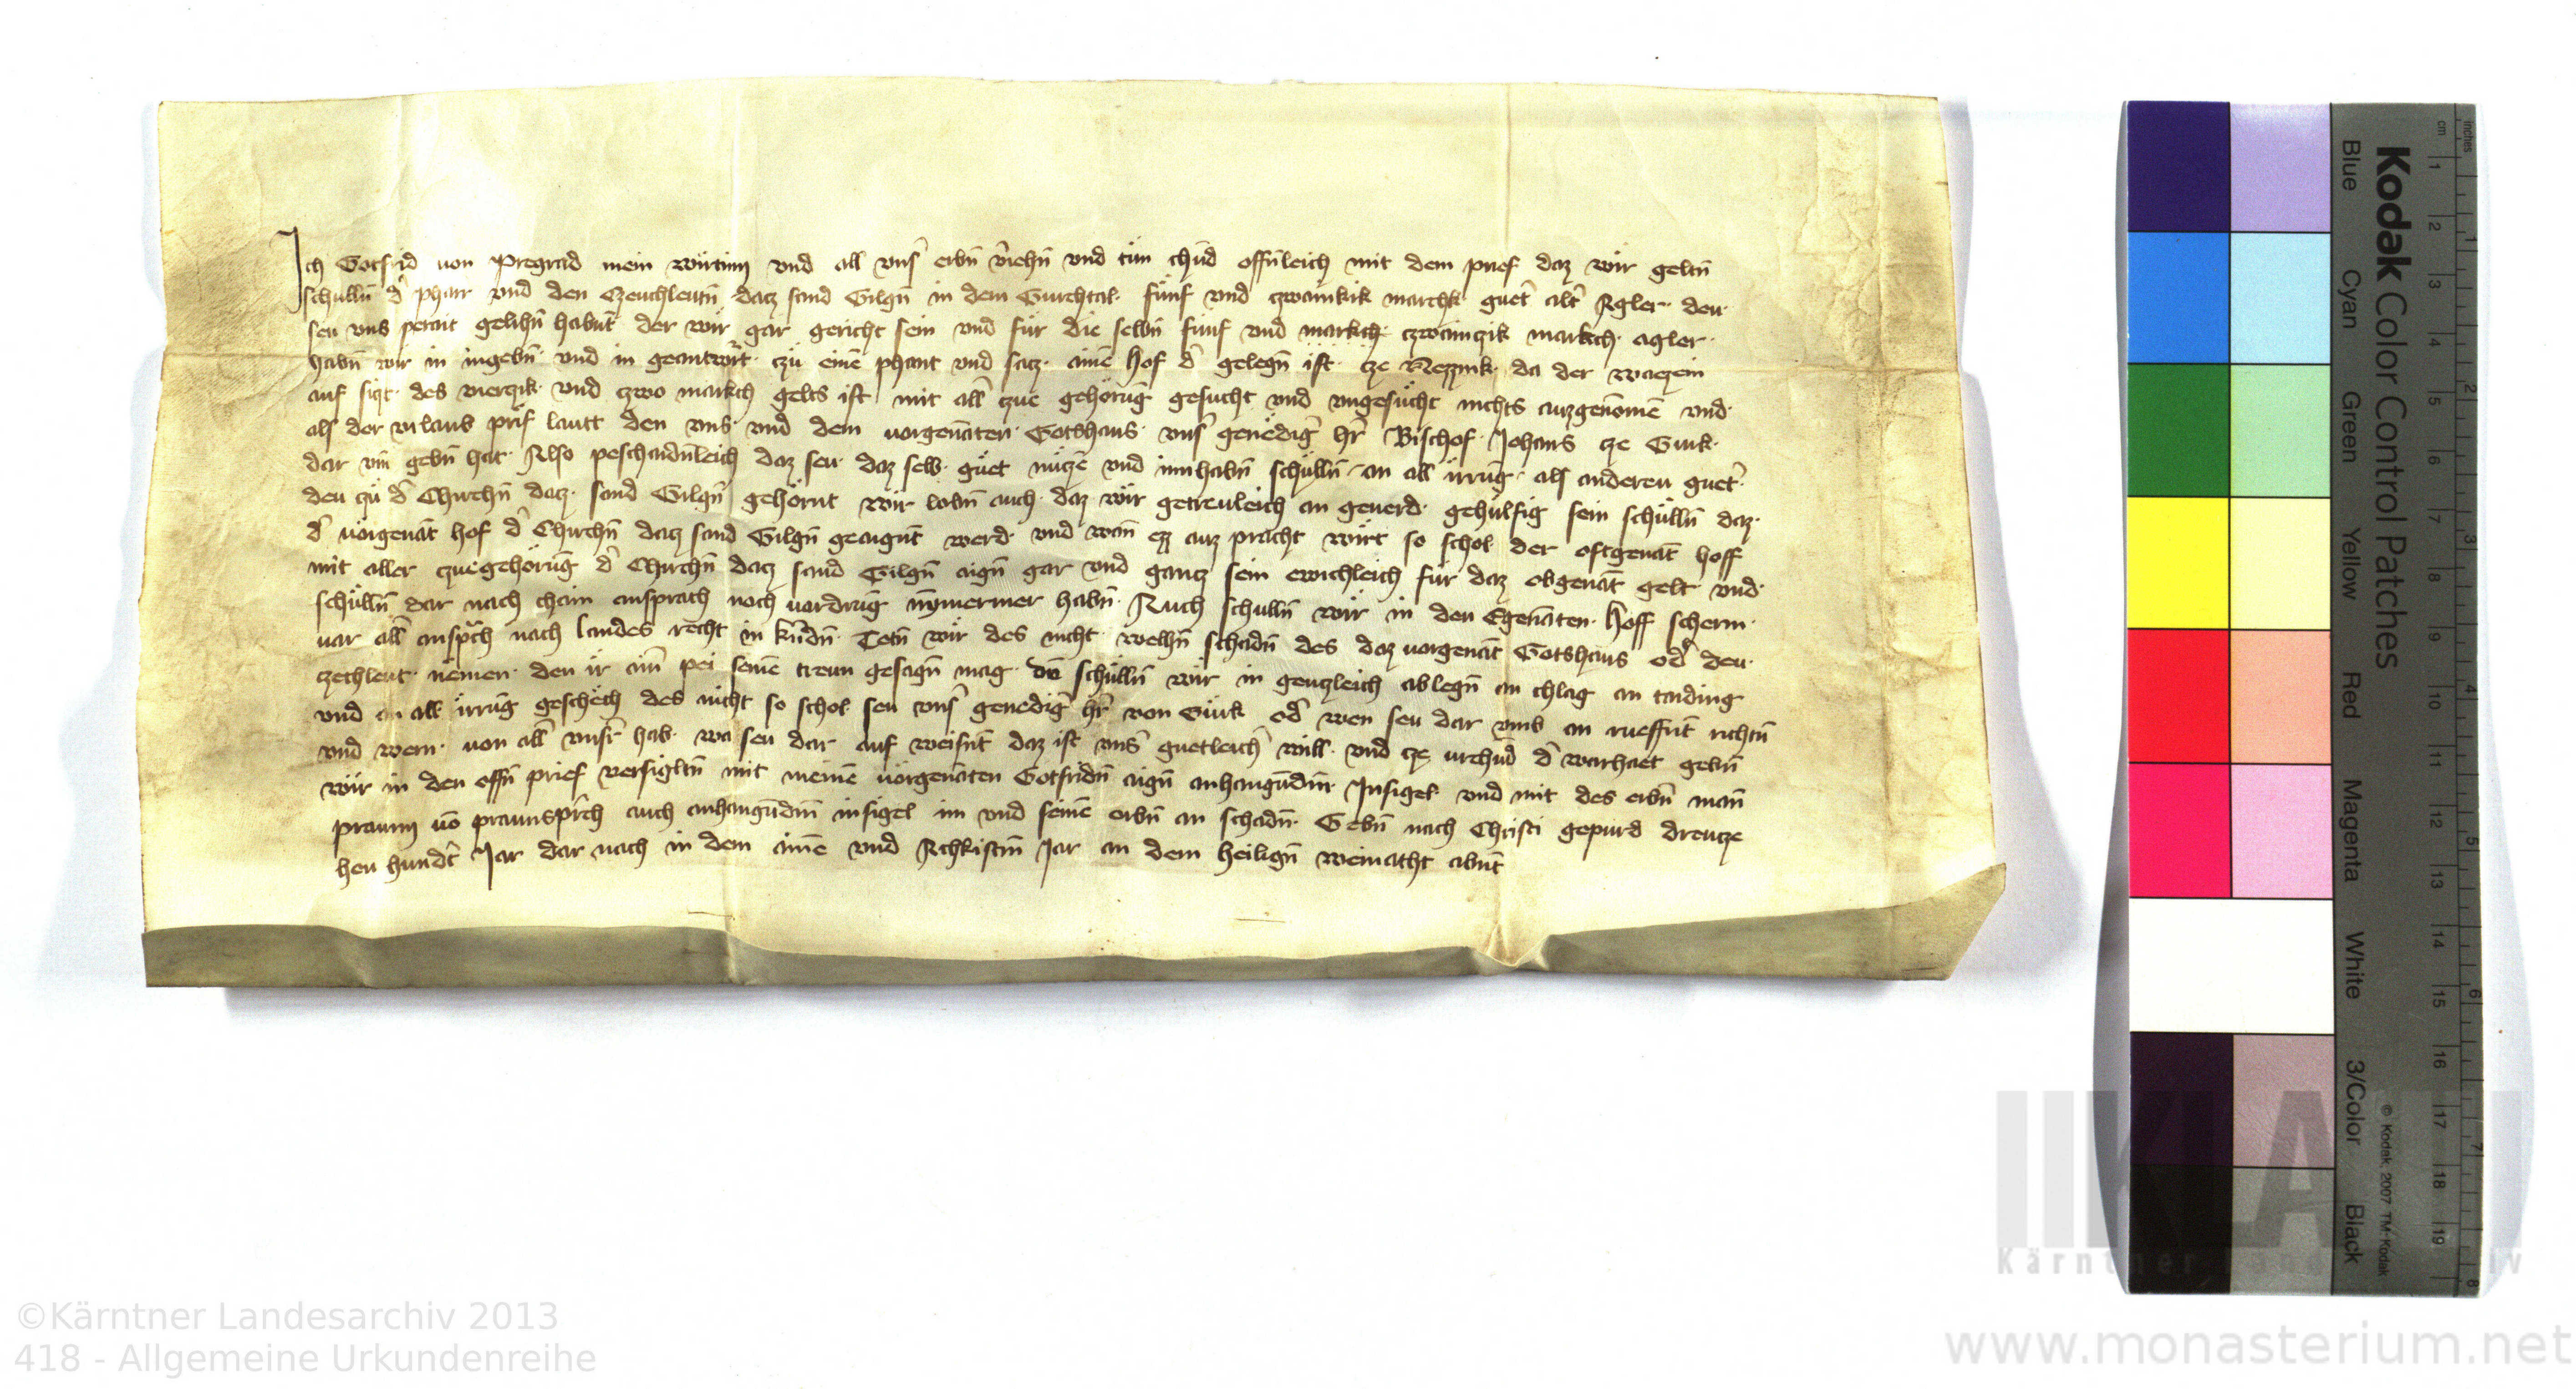 Ich Gotfrid von Pregrad mein wirtinn vnd all vnß erbn̄ v̄iehn̄ vnd tün chūd offn̄leich mit dem prief daz wir geltn̄
schulln̄ d̄ pharr vnd den Czechleutn̄ datz sand Gilgn̄ in dem Gurchtal fünf vnd czwainkik marchk guet̄ alt̄ Agler deu
seu vns perait gelihn̄ habn̄t der wir gar gericht sein vnd für die selbn̄ fünf vnd markch czwainczik markch agler
habn̄ wir in ingebn̄ vnd in geantwürt czü einē phant vnd satz ainē hof d̄ gelegn̄ ist cze da der
auf siczt des vierczik vnd czwo markch gelts ist mit all̄ czue gehörūg gesucht vnd vngesücht nichts auzgenomē vnd
als der vrlaub prif lautt den vns vnd dem vorgenāten Gotshaus vns̄ genediḡ h̄r Bischof Johans cze Gurk
dar vm̄ gebn̄ hat Also peschaidn̄leich daz seu daz selb güet nützē vnd innhabn̄ schülln̄ an all irrūg als anderen guet̄
deu czü d̄ Chirchn̄ datz sand Gilgn̄ gehörnt wir lobn̄ auch daz wir getreuleich an geuerd gehülfig sein schülln̄ daz
d̄ vorgenāt hof d̄ Chirchn̄ datz sand Gilgn̄ geaignt werd vnd wān ez auz pracht würt so schol der oftgenāt hoff
mit aller czuegehörūg d̄ Chirchn̄ datz sand Gilgn̄ aign̄ gar vnd gantz sein ewichleich für daz obgenāt gelt vnd
schülln̄ dar nach chain ansprach noch vordrūg nymermer habn̄ Auch schulln̄ wir in den Egenāten Hoff scherm
uar all̄ anspr̄ch nach landes recht in kernd̄n Tetn̄ wir des nicht welhn̄ schadn̄ des daz vorgenāt Gotshaus od̄ deu
czechleut nemen den ir ain̄ pei seinē treun gesagn̄ mag dē schülln̄ wir in gentzleich ablegn̄ an chlag an taiding
vnd an all irrūg geschech des nicht so schol seu vns̄ genediḡ h̄r von Gurk od̄ wen seu dar vmb an rueffnt richtn̄
vnd wern von all̄ vns̄r hab wa seu dar auf weisn̄t daz ist vns̄ guetleich̄ will vnd cze vrchūd d̄ warhaet gebn̄
wir in den offn̄ prief versigltn̄ mit meinē vorgenāten Gotfridn̄ aign̄ anhangūdm̄ Insigel vnd mit des erbn̄ man̄
praunn uō praunsperch auch anhangūdm̄ insigel im vnd seinē erbn̄ an schadn̄ Gebn̄ nach Christi gepurd dreutze
hen hundt̄ Jar dar nach in dem ainē vnd Achkistm̄ Jar an dem heilign̄ weinacht abnt
Kodak Color Control Patches
Blue Cyan Green Yellow Red Magenta White 3/Color Black
© Kodak, 2007 TM: Kodak
cm 1 2 3 4 5 6 7 8 9 10 11 12 13 14 15 16 17 18 19
inches 1 2 3 4 5 6 7 8
©Kärntner Landesarchiv 2013
418 - Allgemeine Urkundenreihe
www.monasterium.net